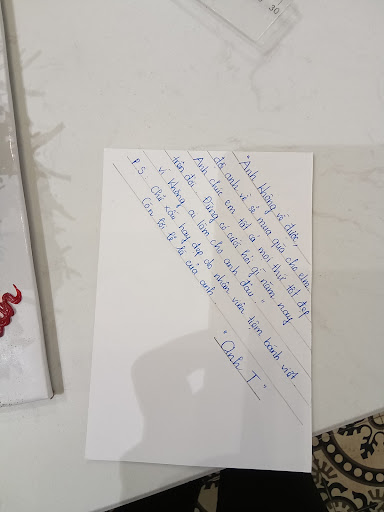 "Anh không về được,
đợi anh về sẽ mua quà cho em.
Anh chúc em tất cả mọi thứ tốt đẹp
trên đời. Đừng có cưới hỏi gì năm nay
vì không ai làm cho anh đâu..."
P.S: Chữ xấu hay đẹp do nhân viên tiệm bánh viết
Còn lời lẽ là của anh.
"Anh T"
30